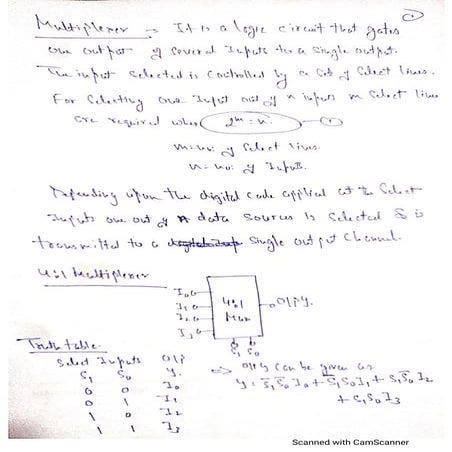 ①
Multiplexer → It is a logic circuit that gates
one output of several Inputs to a single output.
The input selected is controlled by a set of select lines.
For selecting one Input out of n inputs m select lines
are required when 2^m = n. —①
m = no: of select lines.
n = no: of Inputs.
Depending upon the digital code applied at the select
Inputs one out of n data sources is selected & is
transmitted to a single output channel.
4:1 Multiplexer
I₀
I₁
I₂
I₃
4:1
Mux
O/P Y.
S₁ S₀
Truth table.
Select Inputs O/P
S₁ S₀ Y.
0 0 I₀
0 1 I₁
1 0 I₂
1 1 I₃
⇒ O/P Y can be given as
Y = S̄₁S̄₀I₀ + S̄₁S₀I₁ + S₁S̄₀I₂
+ S₁S₀I₃
Scanned with CamScanner